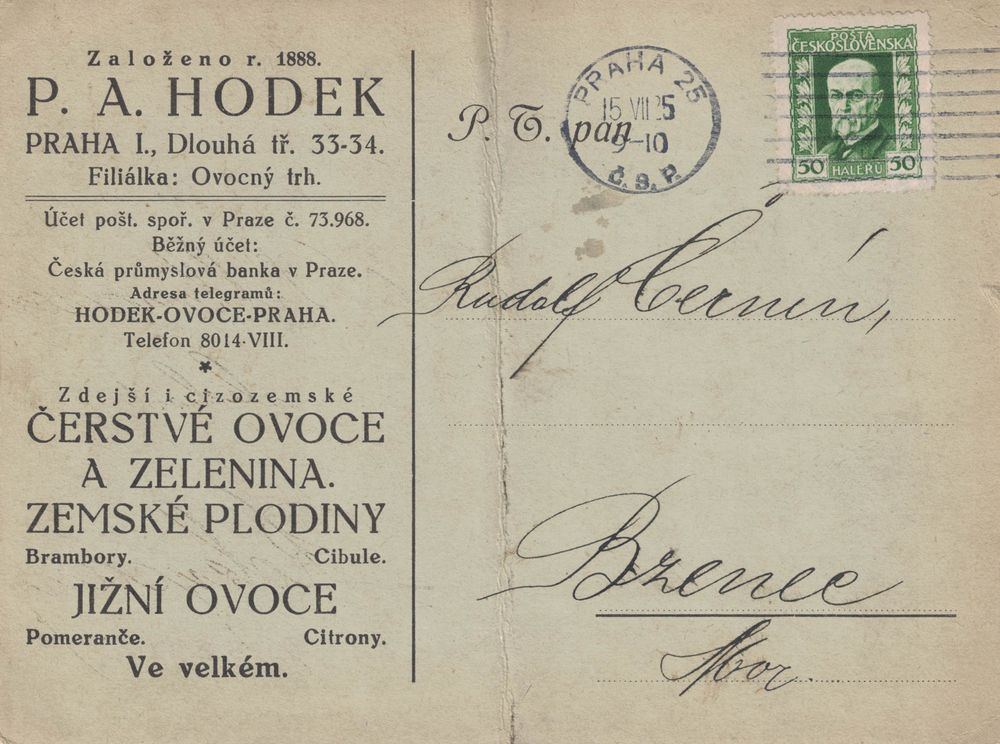 Založeno r. 1888.
P. A. HODEK
PRAHA I., Dlouhá tř. 33-34.
Filiálka: Ovocný trh.
Účet pošt. spoř. v Praze č. 73.968.
Běžný účet:
Česká průmyslová banka v Praze.
Adresa telegramů:
HODEK-OVOCE-PRAHA.
Telefon 8014-VIII.
*
Zdejší i cizozemské
ČERSTVÉ OVOCE
A ZELENINA.
ZEMSKÉ PLODINY
Brambory. Cibule.
JIŽNÍ OVOCE
Pomeranče. Citrony.
Ve velkém.
P. T. pán
PRAHA 25
15 VII 25
9-10
Č. S. P.
POŠTA
ČESKOSLOVENSKÁ
50 HALÉŘŮ 50
Rudolf Černín,
Bzenec
Mor.